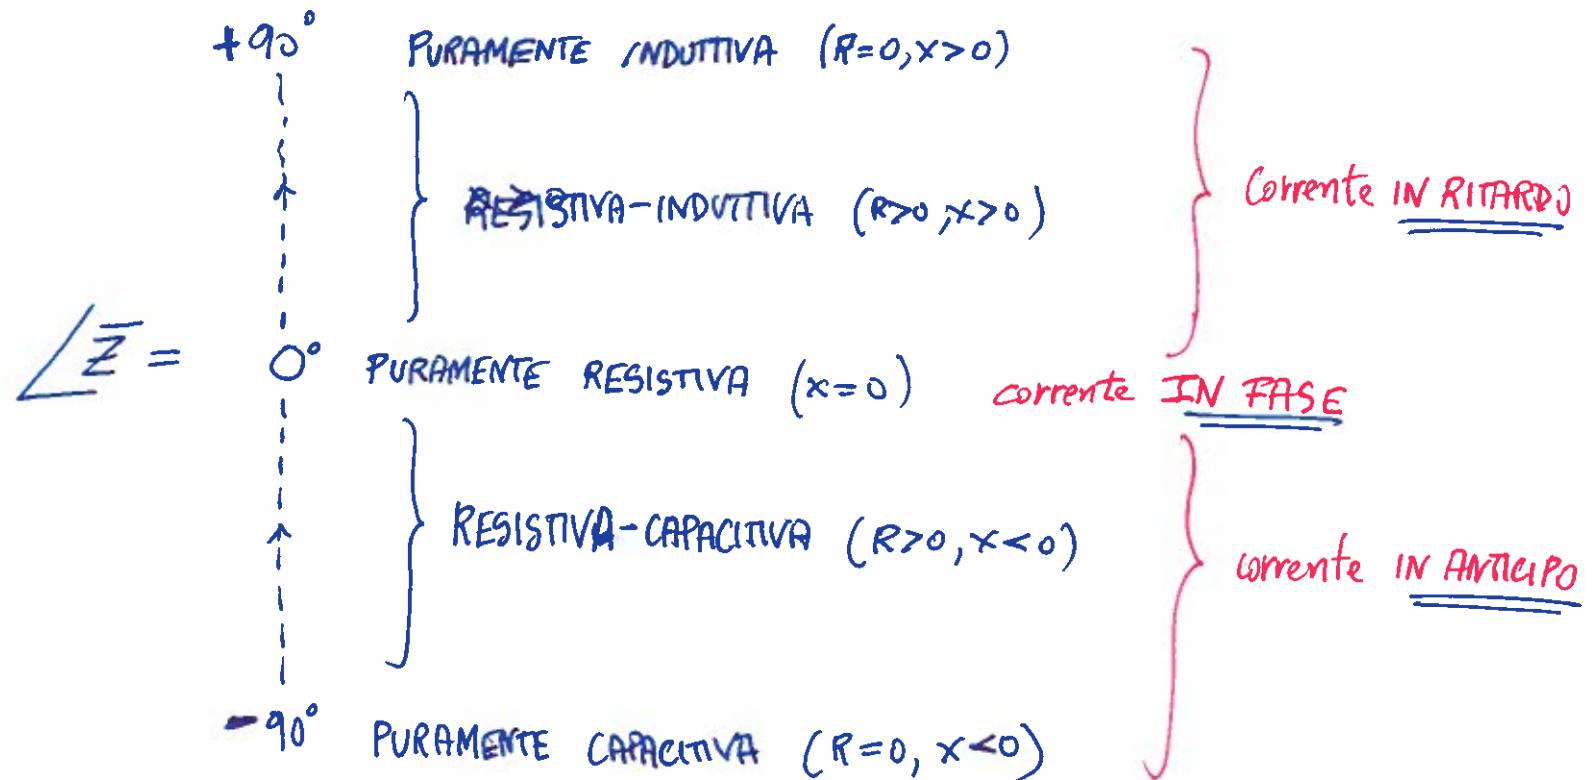 +90° PURAMENTE INDUTTIVA (R=0, X>0)
RESISTIVA-INDUTTIVA (R>0, X>0) Corrente IN RITARDO
∠Z̅ = 0° PURAMENTE RESISTIVA (X=0) corrente IN FASE
RESISTIVA-CAPACITIVA (R>0, X<0) corrente IN ANTICIPO
-90° PURAMENTE CAPACITIVA (R=0, X<0)